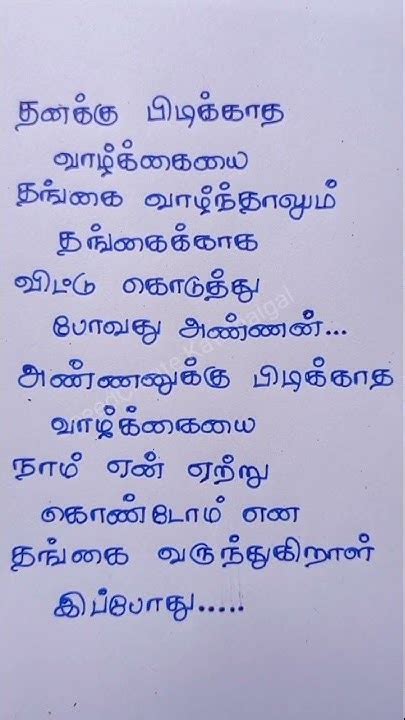 தனக்கு பிடிக்காத
வாழ்க்கையை
தங்கை வாழ்ந்தாலும்
தங்கைக்காக
விட்டு கொடுத்து
போவது அண்ணன்...
அண்ணனுக்கு பிடிக்காத
வாழ்க்கையை
நாம் ஏன் ஏற்று
கொண்டோம் என
தங்கை வருந்துகிறாள்
இப்போது.....